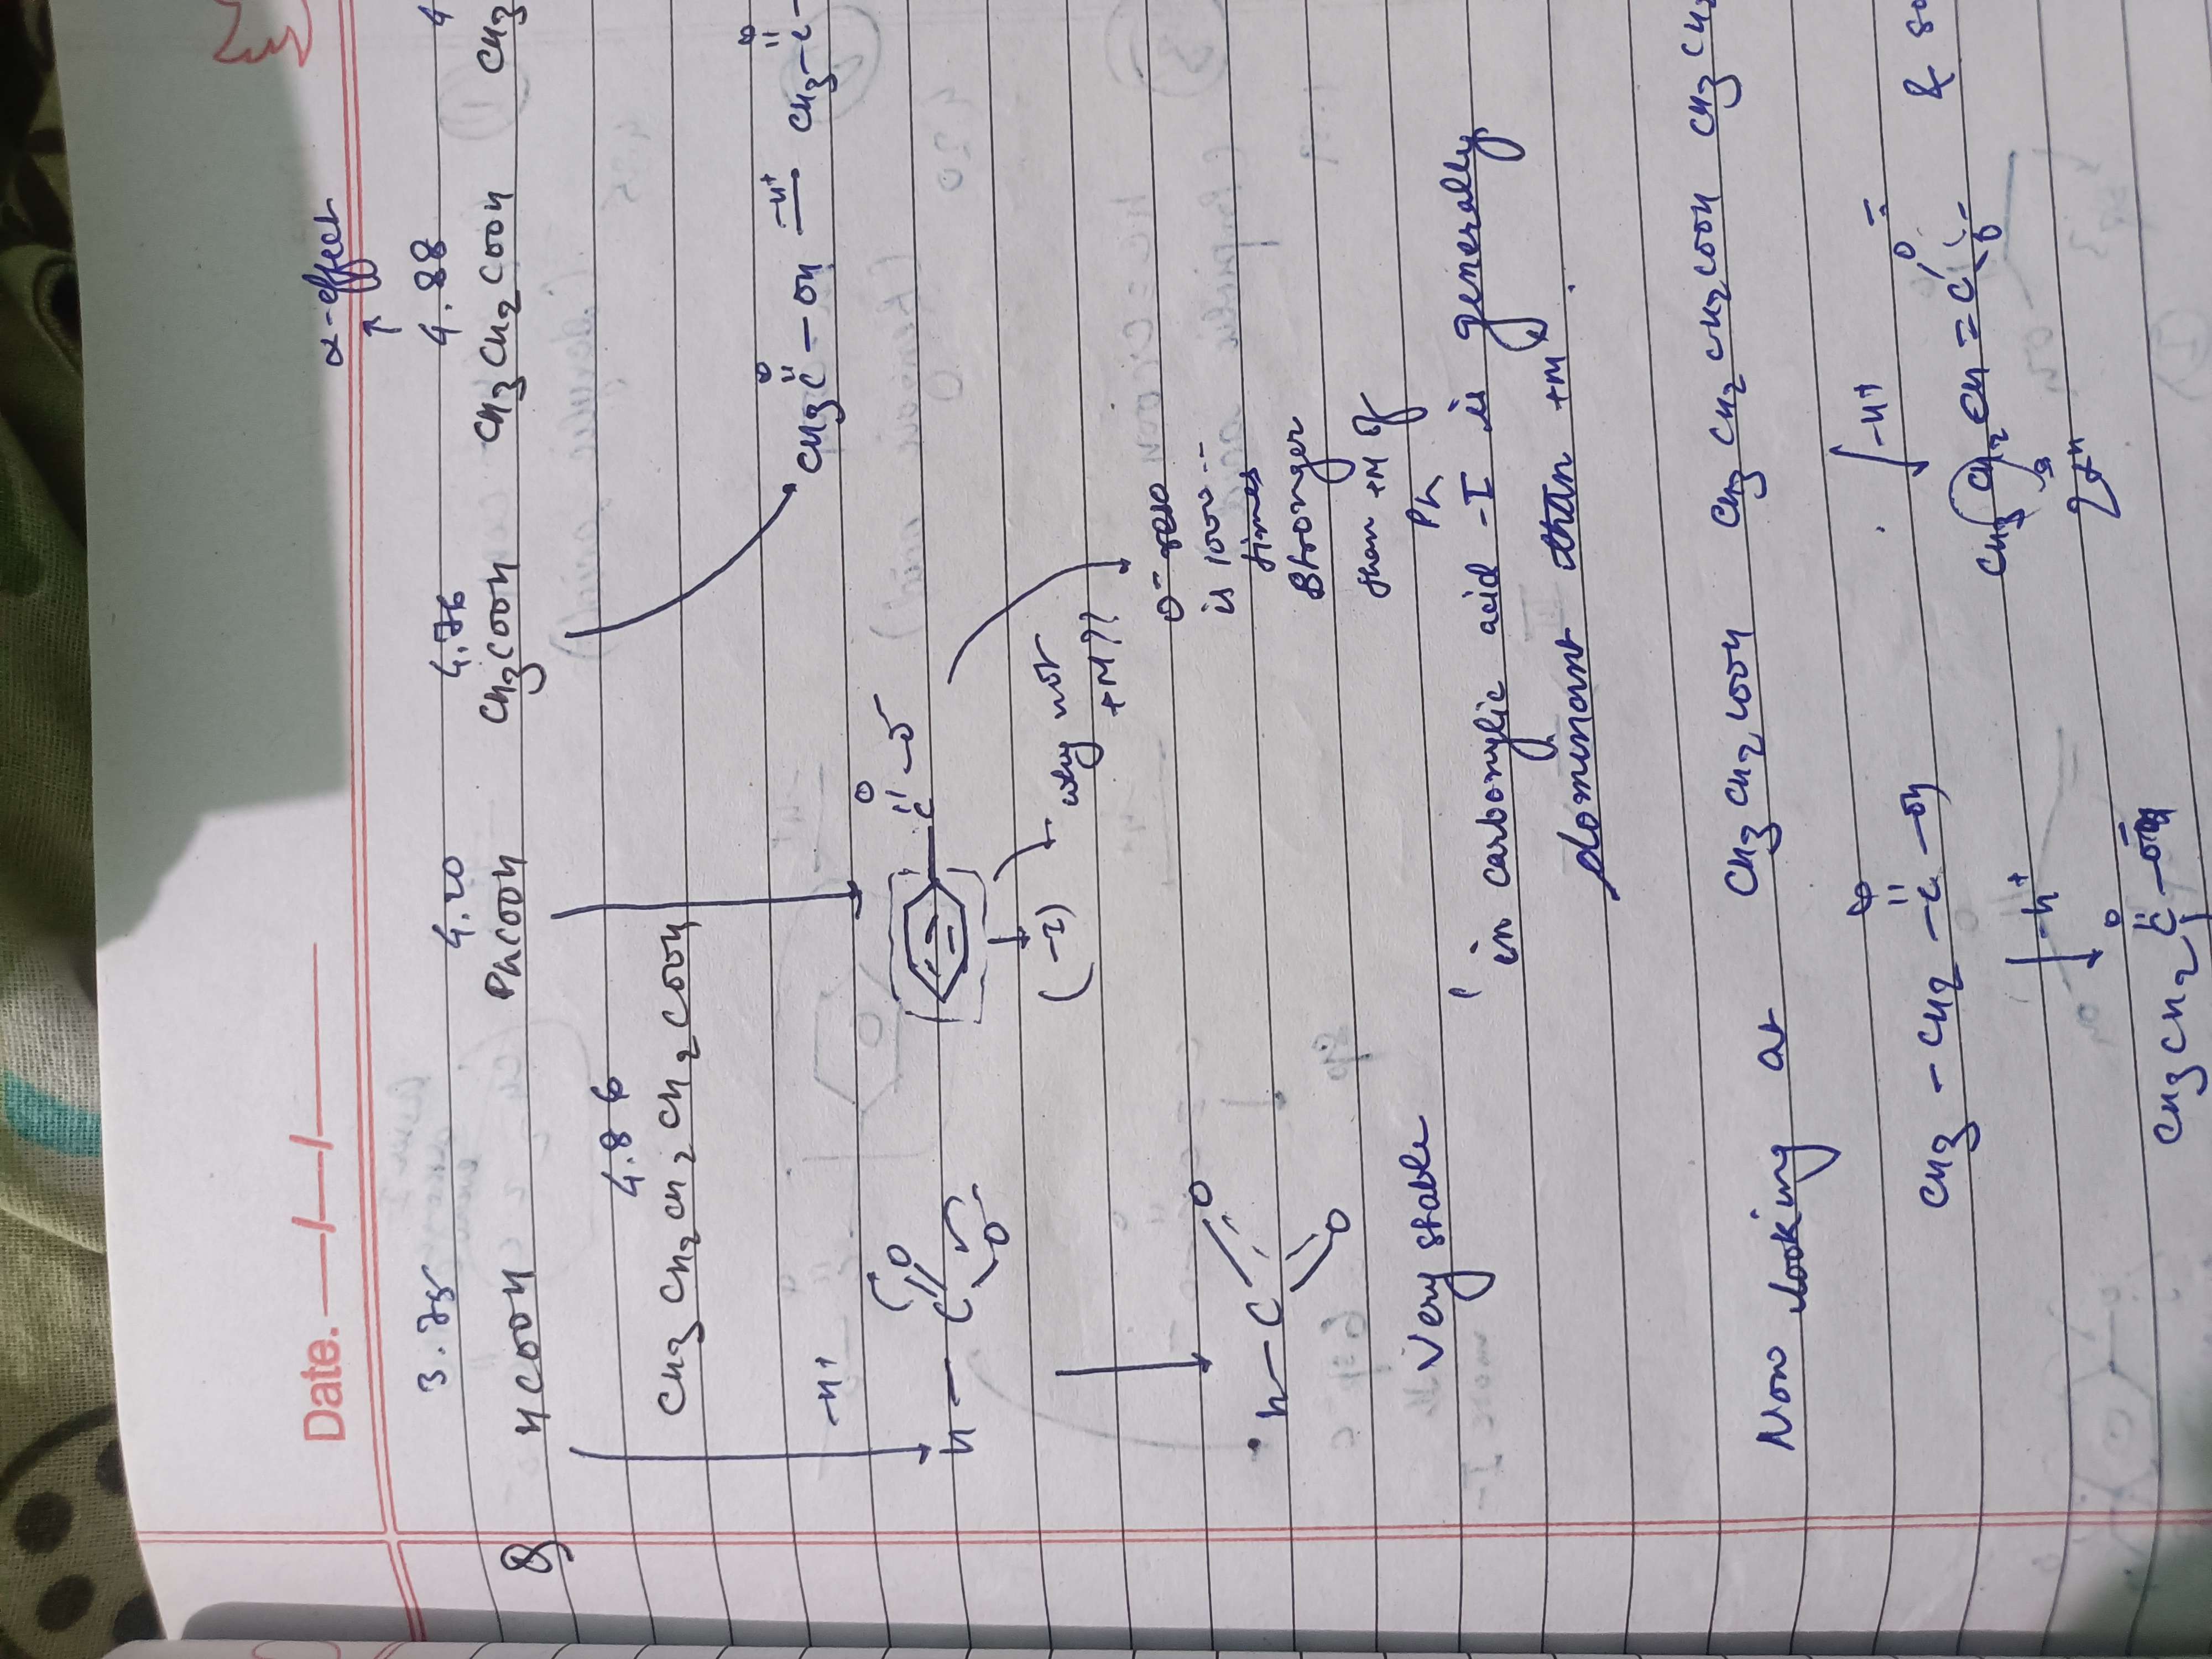 Date. —/—/—
α-effect
3.75 4.20 4.76 4.88 4
Q) HCOOH PhCOOH CH3COOH CH3CH2COOH CH3
4.86
CH3CH2CH2CH2COOH
-H+
O O
CH3C-OH -H+ CH3-C-
O
C-O-
H-C
O
O-
(-I) why not
+M??
O-
is 1000--
times
stronger
than +M of
Ph
H-C
O
O
Very stable
' in carboxylic acid -I is generally
dominant than +M.
Now looking at CH3CH2COOH CH3CH2CH2COOH CH3CH2
O
CH3-CH2-C-OH
-H+
-H+
O
CH3CH2CH=C
O-
& so
O
CH3CH2C-O